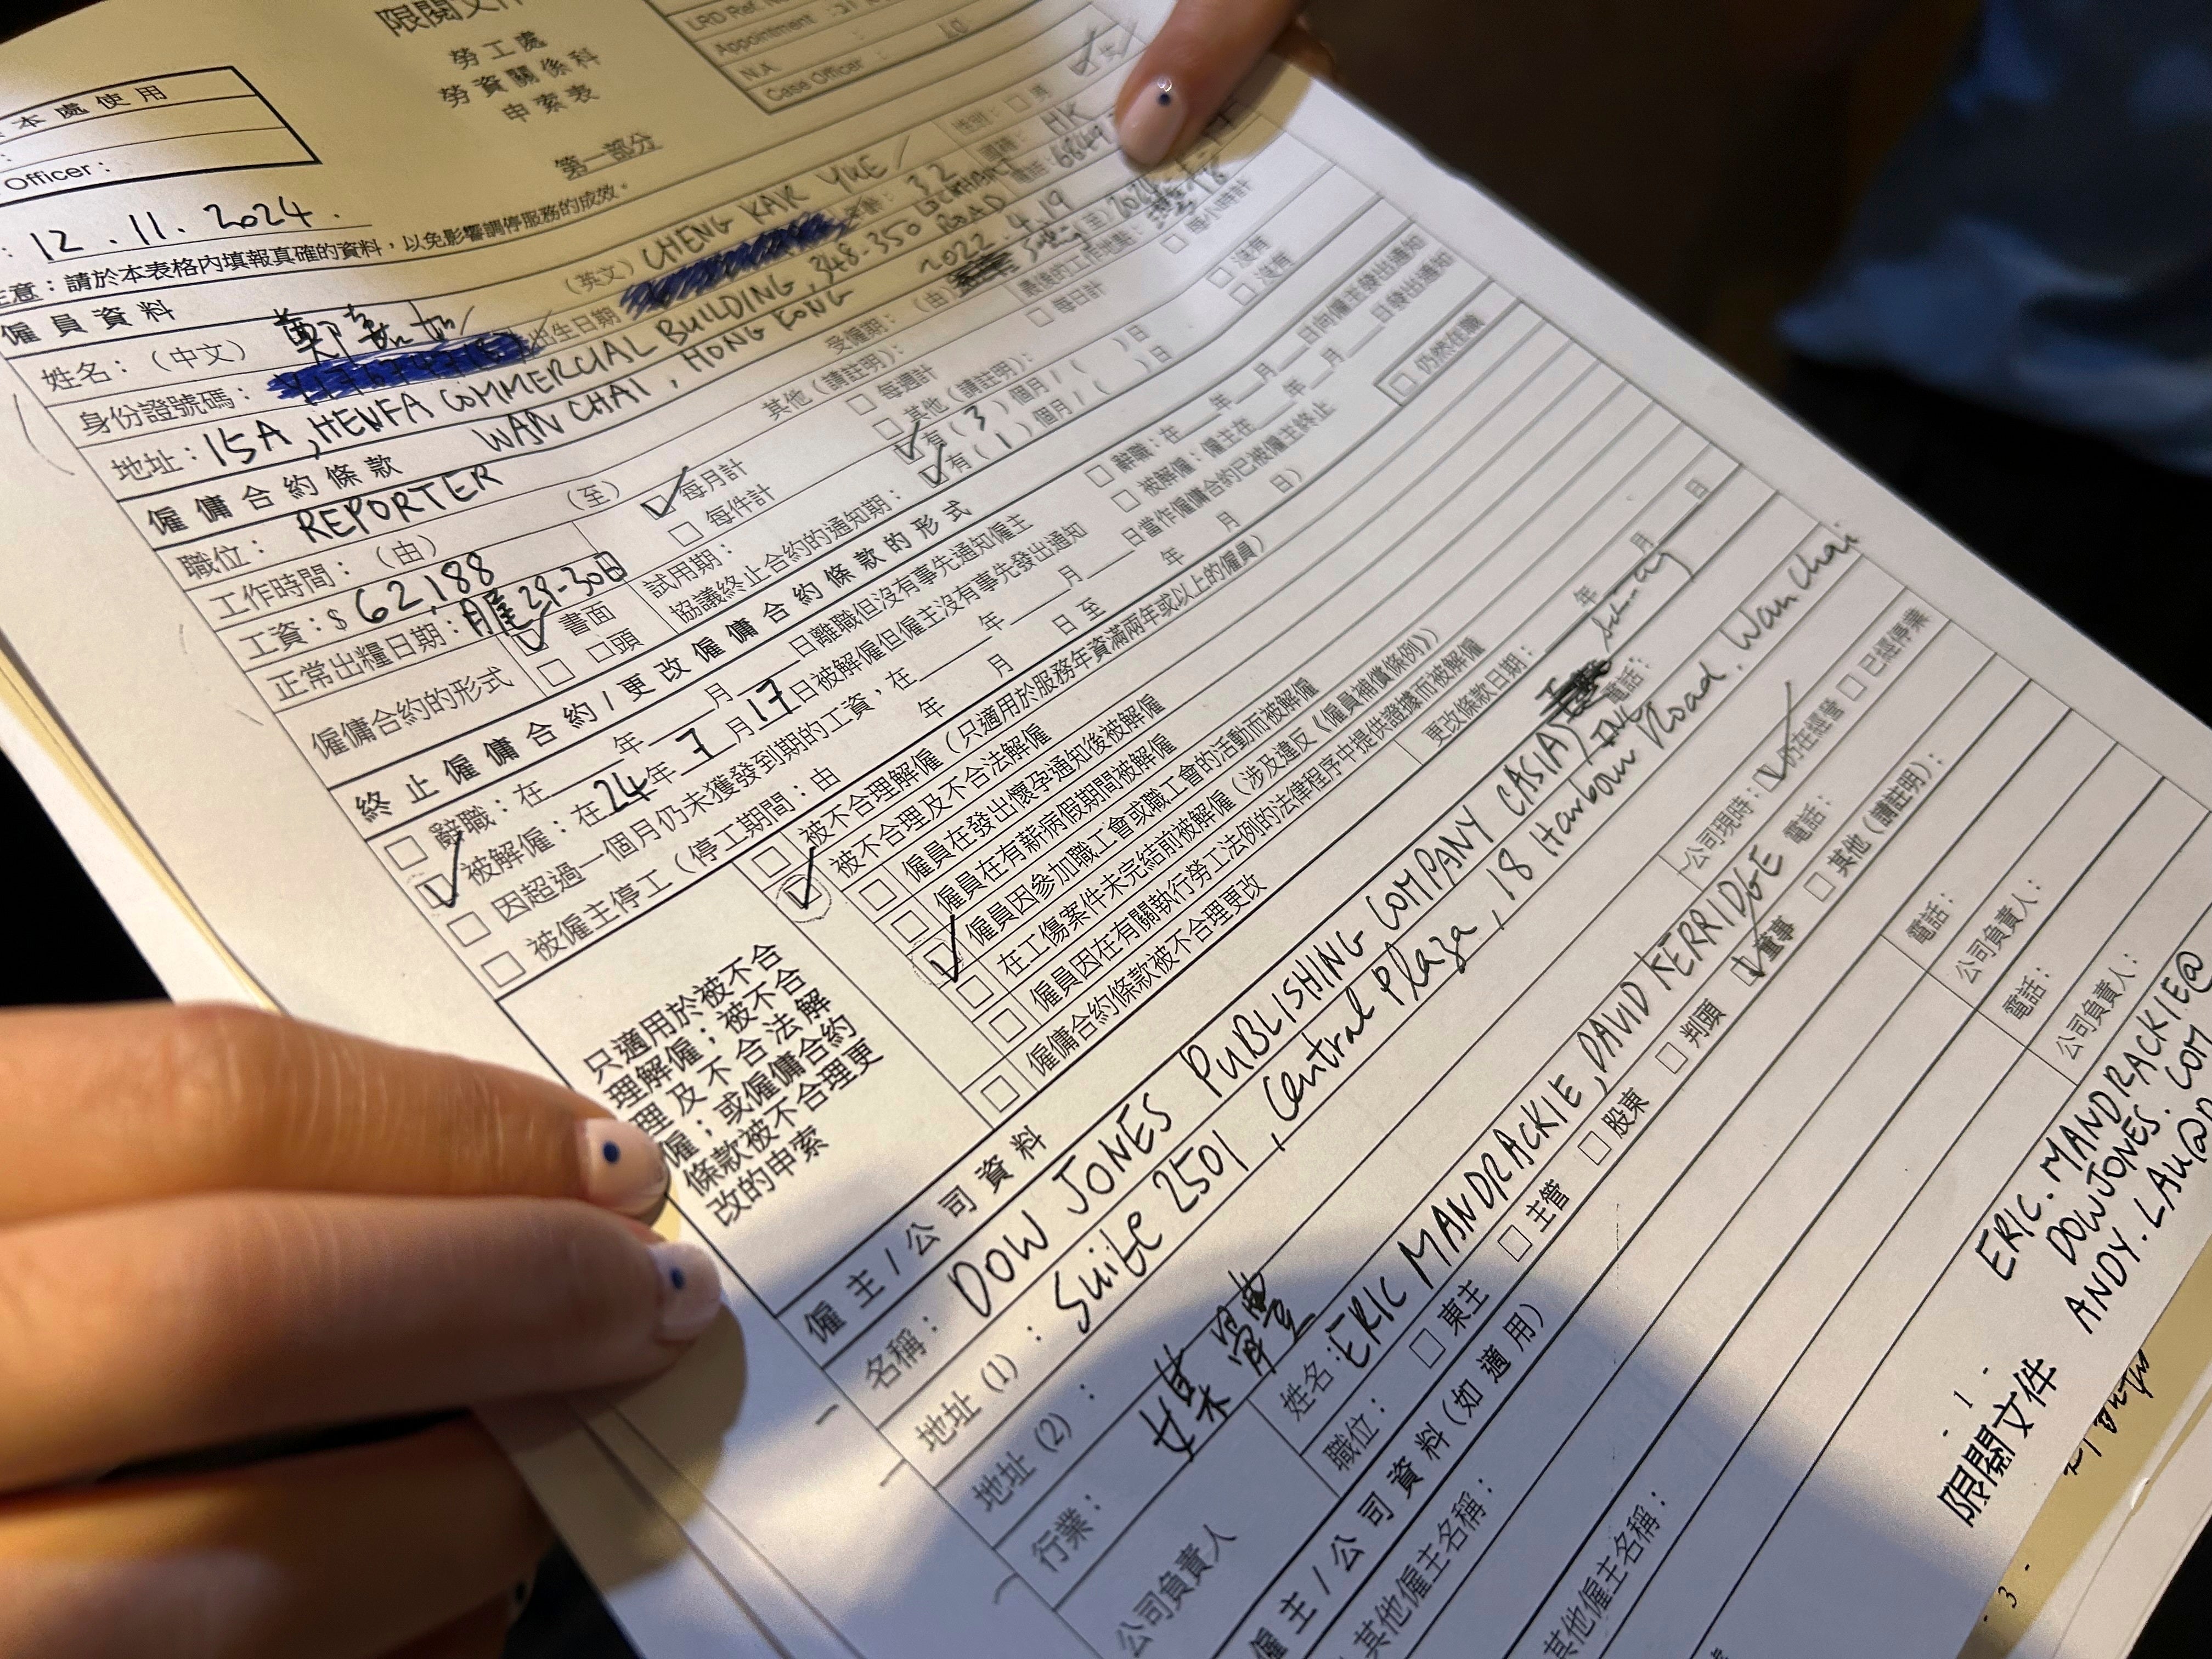 限閱文件
勞工處
勞資關係科
申索表
第一部分
LRD Ref. No
Appointment :
N.A
Case Officer :
本處使用
Officer :
: 12.11.2024.
注意：請於本表格內填報真確的資料，以免影響調停服務的成效。
僱員資料
姓名：（中文） 鄭嘉如 （英文） CHENG KAR YUE 性別： □ 男 ☑ 女
身份證號碼： 出生日期 年齡： 32 國籍： HK
地址： 15A, HENFA COMMERCIAL BUILDING, 348-350 LOCKHART ROAD 電話： 6849
WAN CHAI, HONG KONG
僱傭合約條款
職位： REPORTER 受僱期：（由） 2022.4.19 （至） 2024
工作時間：（由） （至） 其他（請註明）： 最後的工作地點：
工資：$ 62,188 ☑ 每月計 □ 每週計 □ 每日計 □ 每小時計
□ 每件計 □ 其他（請註明）：
正常出糧日期： 月尾 29-30日 試用期： ☑ 有 ( 3 ) 個月 / ( ) 日 □ 沒有
僱傭合約的形式 ☑ 書面 □ 口頭 協議終止合約的通知期： ☑ 有 ( 1 ) 個月 / ( ) 日 □ 沒有
終止僱傭合約/更改僱傭合約條款的形式
□ 辭職：在 年 月 日離職但沒有事先通知僱主 □ 辭職：在 年 月 日向僱主發出通知
☑ 被解僱：在 24 年 7 月 17 日被解僱但僱主沒有事先發出通知 □ 被解僱：僱主在 年 月 日發出通知
□ 因超過一個月仍未獲發到期的工資，在 年 月 日當作僱傭合約已被僱主終止
□ 被僱主停工（停工期間：由 年 月 日 至 年 月 日） □ 仍然在職
只適用於被不合理解僱；被不合理及不合法解僱；或僱傭合約條款被不合理更改的申索
□ 被不合理解僱（只適用於服務年資滿兩年或以上的僱員）
☑ 被不合理及不合法解僱
□ 僱員在發出懷孕通知後被解僱
□ 僱員在有薪病假期間被解僱
☑ 僱員因參加職工會或職工會的活動而被解僱
□ 在工傷案件未完結前被解僱（涉及違反《僱員補償條例》）
□ 僱員因在有關執行勞工法例的法律程序中提供證據而被解僱
□ 僱傭合約條款被不合理更改 更改條款日期： 年 月 日
僱主/公司資料
名稱： DOW JONES PUBLISHING COMPANY (ASIA), INC 電話：
地址 (1)： Suite 2501, Central Plaza, 18 Harbour Road, Wan Chai
地址 (2)：
行業： 媒體 公司現時： ☑ 仍在經營 □ 已經停業
公司負責人 姓名： ERIC MANDRACKIE, DAVID KERRIDGE 電話：
職位： □ 東主 □ 主管 □ 股東 □ 判頭 ☑ 董事 □ 其他（請註明）：
僱主/公司資料（如適用）
其他僱主名稱： 電話： 公司負責人：
其他僱主名稱： 電話： 公司負責人：
ERIC.MANDRACKIE@
DOWJONES.COM
ANDY.LAU@D
- 1 -
限閱文件
- 3 -